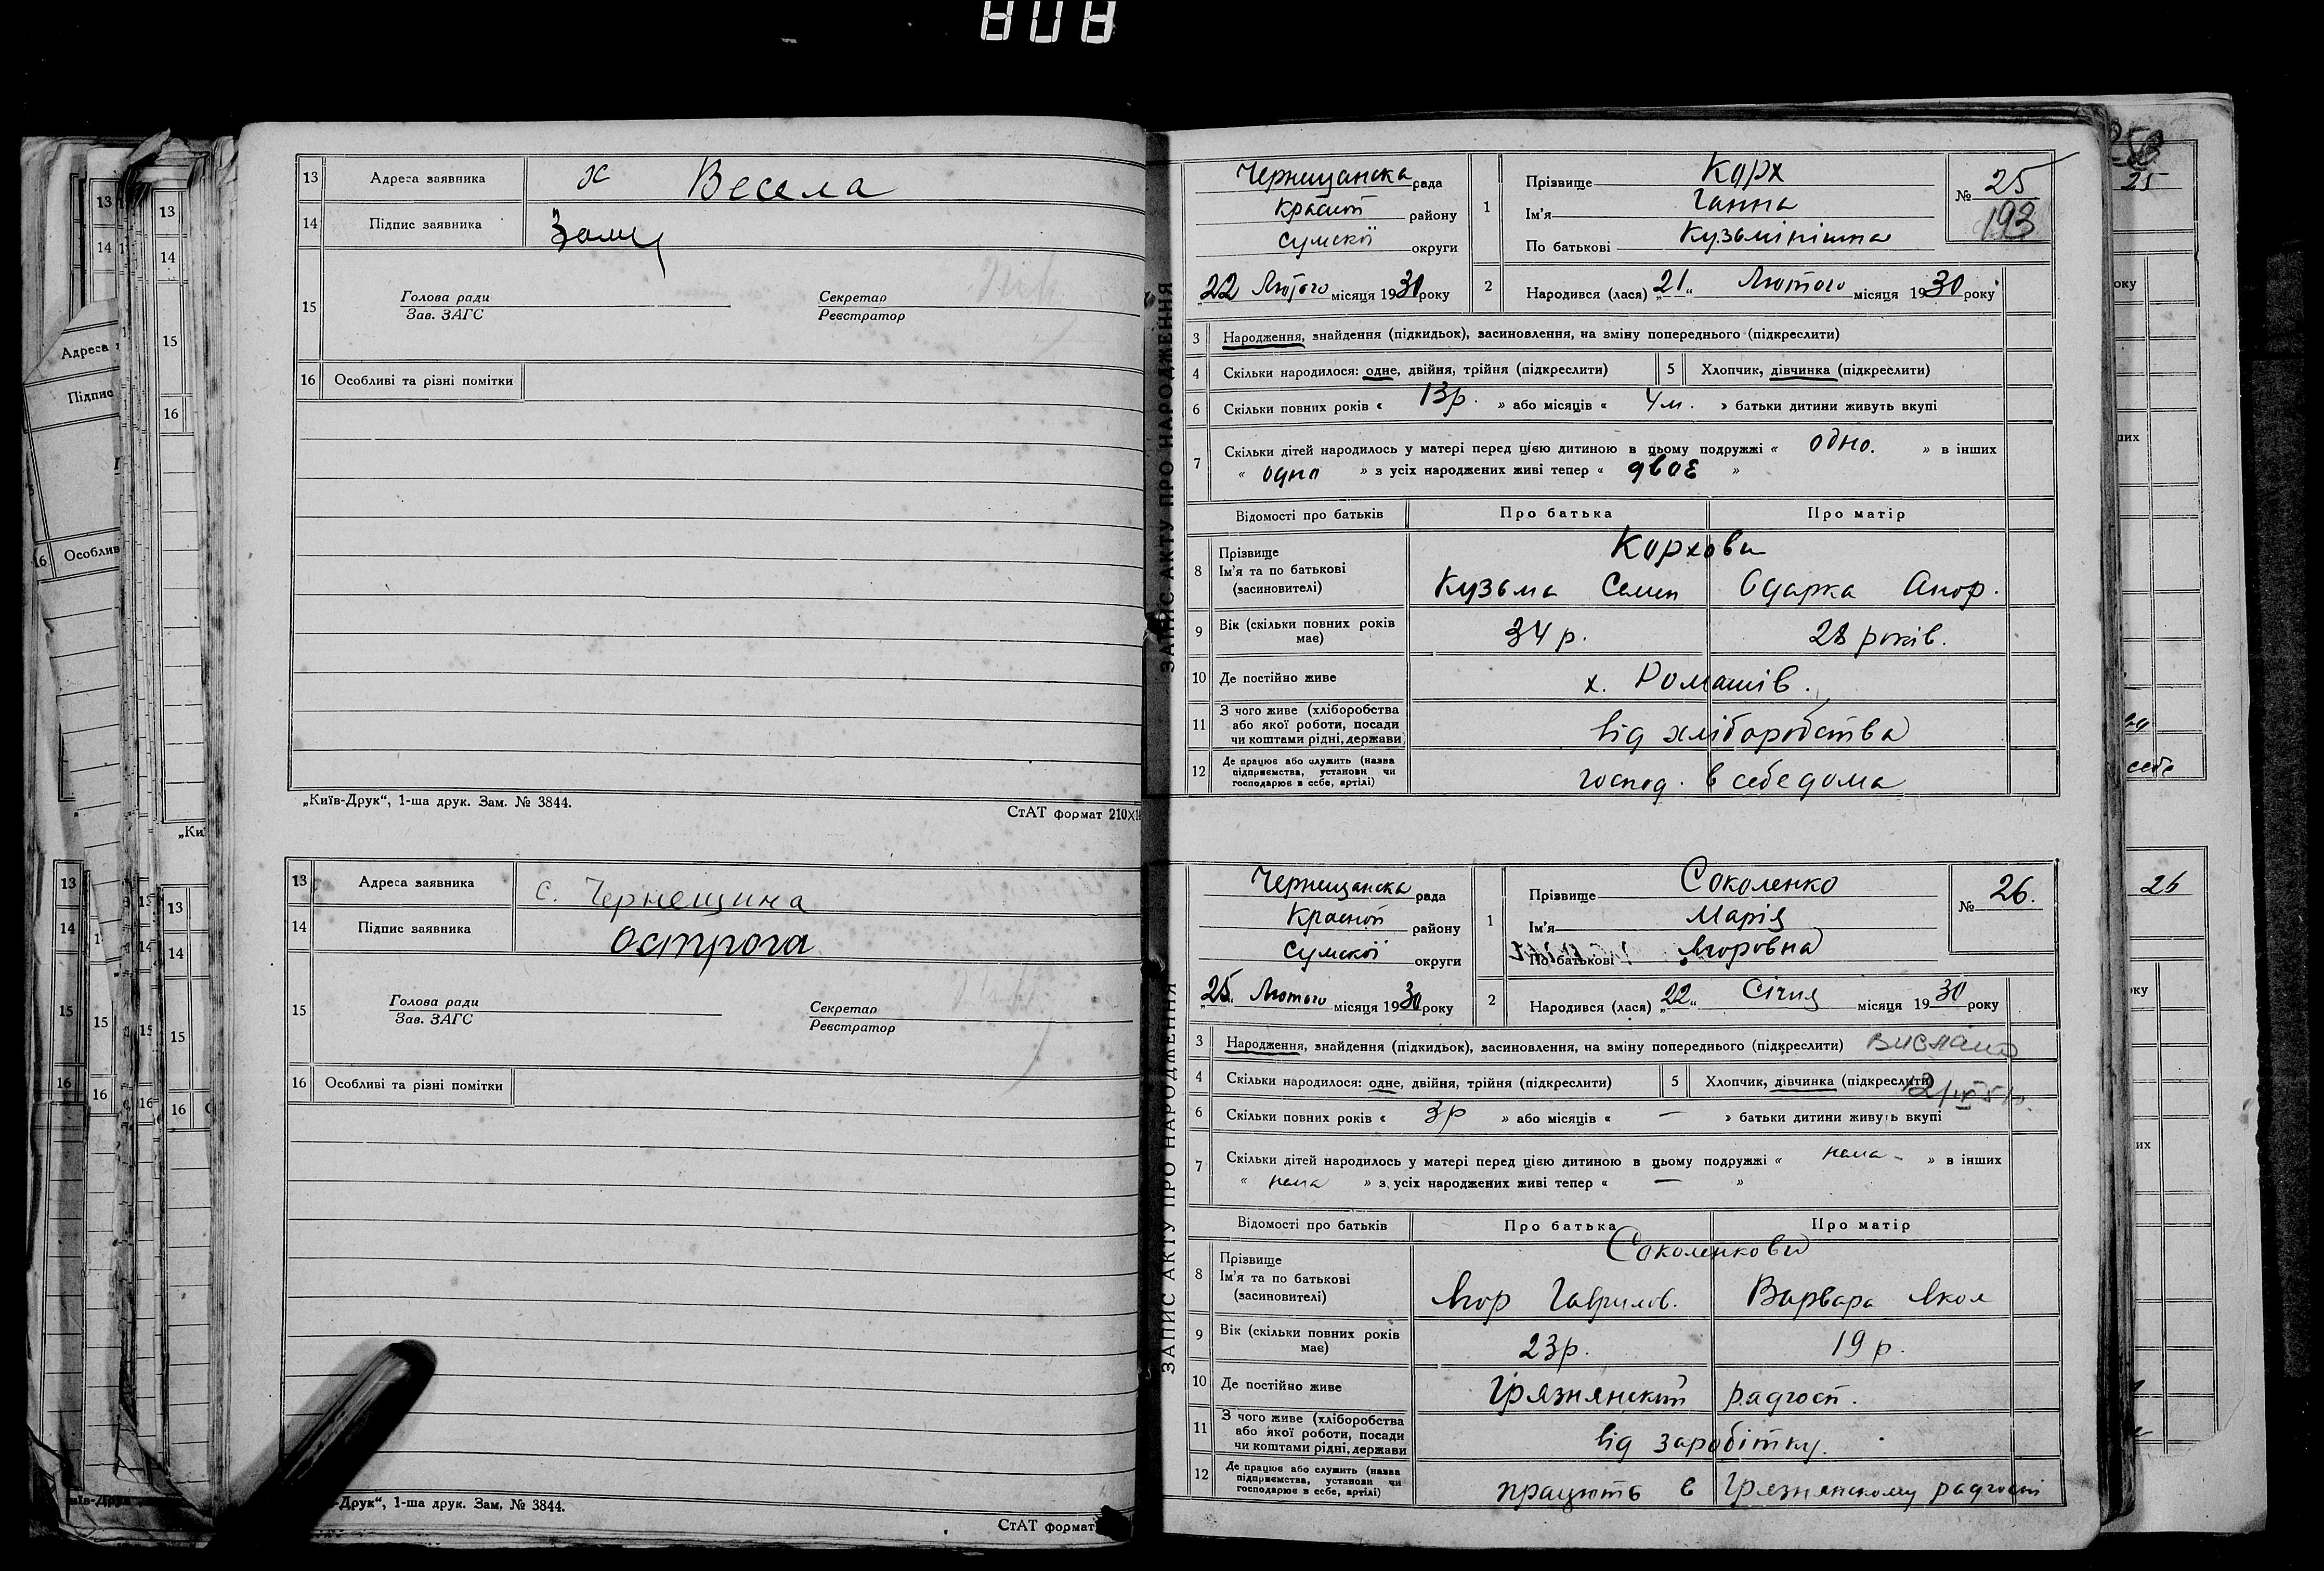 808
13 Адреса заявника х Весела
14 Підпис заявника
15 Голова ради Секретар
Зав. ЗАГС Реєстратор
16 Особливі та різні помітки
„Київ-Друк“, 1-ша друк. Зам. № 3844.
СтАТ формат 210×1
13 Адреса заявника с. Чернещина
14 Підпис заявника Острога
15 Голова ради Секретар
Зав. ЗАГС Реєстратор
16 Особливі та різні помітки
-Друк“, 1-ша друк. Зам. № 3844.
СтАТ формат
ЗАПИС АКТУ ПРО НАРОДЖЕННЯ
Чернещанска рада
Красноп району
Сумскої округи
„22 Лютого місяця 1930 року
1 Прізвище Корх
Ім'я Ганна
По батькові Кузьмінішна
№ 25
193
2 Народився (лася) „21“ Лютого місяця 1930 року
3 Народження, знайдення (підкидьок), засиновлення, на зміну попереднього (підкреслити)
4 Скільки народилося: одне, двійня, трійня (підкреслити) 5 Хлопчик, дівчинка (підкреслити)
6 Скільки повних років « 13р. » або місяців « 4м. » батьки дитини живуть вкупі
7 Скільки дітей народилось у матері перед цією дитиною в цьому подружжі « одно. » в інших
« одно » з усіх народжених живі тепер « двоє »
Відомості про батьків Про батька Про матір
8 Прізвище Корхови
Ім'я та по батькові
(засиновителі) Кузьма Семен Одарка Аноф.
9 Вік (скільки повних років має) 34 р. 28 років.
10 Де постійно живе х. Ромашів.
11 З чого живе (хліборобства
або якої роботи, посади
чи коштами рідні, держави від хліборобства
12 Де працює або служить (назва
підприємства, установи чи
господарює в себе, артілі) господ. в себе дома
ЗАПИС АКТУ ПРО НАРОДЖЕННЯ
Чернещанска рада
Красноп району
Сумскої округи
„25“ Лютого місяця 1930 року
1 Прізвище Соколенко
Ім'я Марія
По батькові Єгоровна
№ 26.
2 Народився (лася) „22“ Січня місяця 1930 року
3 Народження, знайдення (підкидьок), засиновлення, на зміну попереднього (підкреслити)
4 Скільки народилося: одне, двійня, трійня (підкреслити) 5 Хлопчик, дівчинка (підкреслити)
6 Скільки повних років « 3р » або місяців « — » батьки дитини живуть вкупі
7 Скільки дітей народилось у матері перед цією дитиною в цьому подружжі « нема - » в інших
« нема » з усіх народжених живі тепер « — »
Відомості про батьків Про батька Про матір
8 Прізвище Соколенкови
Ім'я та по батькові
(засиновителі) Єгор Гаврилов. Варвара Якол
9 Вік (скільки повних років має) 23р. 19 р.
10 Де постійно живе Грязнянский радгосп.
11 З чого живе (хліборобства
або якої роботи, посади
чи коштами рідні, держави від заробітку.
12 Де працює або служить (назва
підприємства, установи чи
господарює в себе, артілі) працюють в Грязнянскому радгоспі
25
себе
26